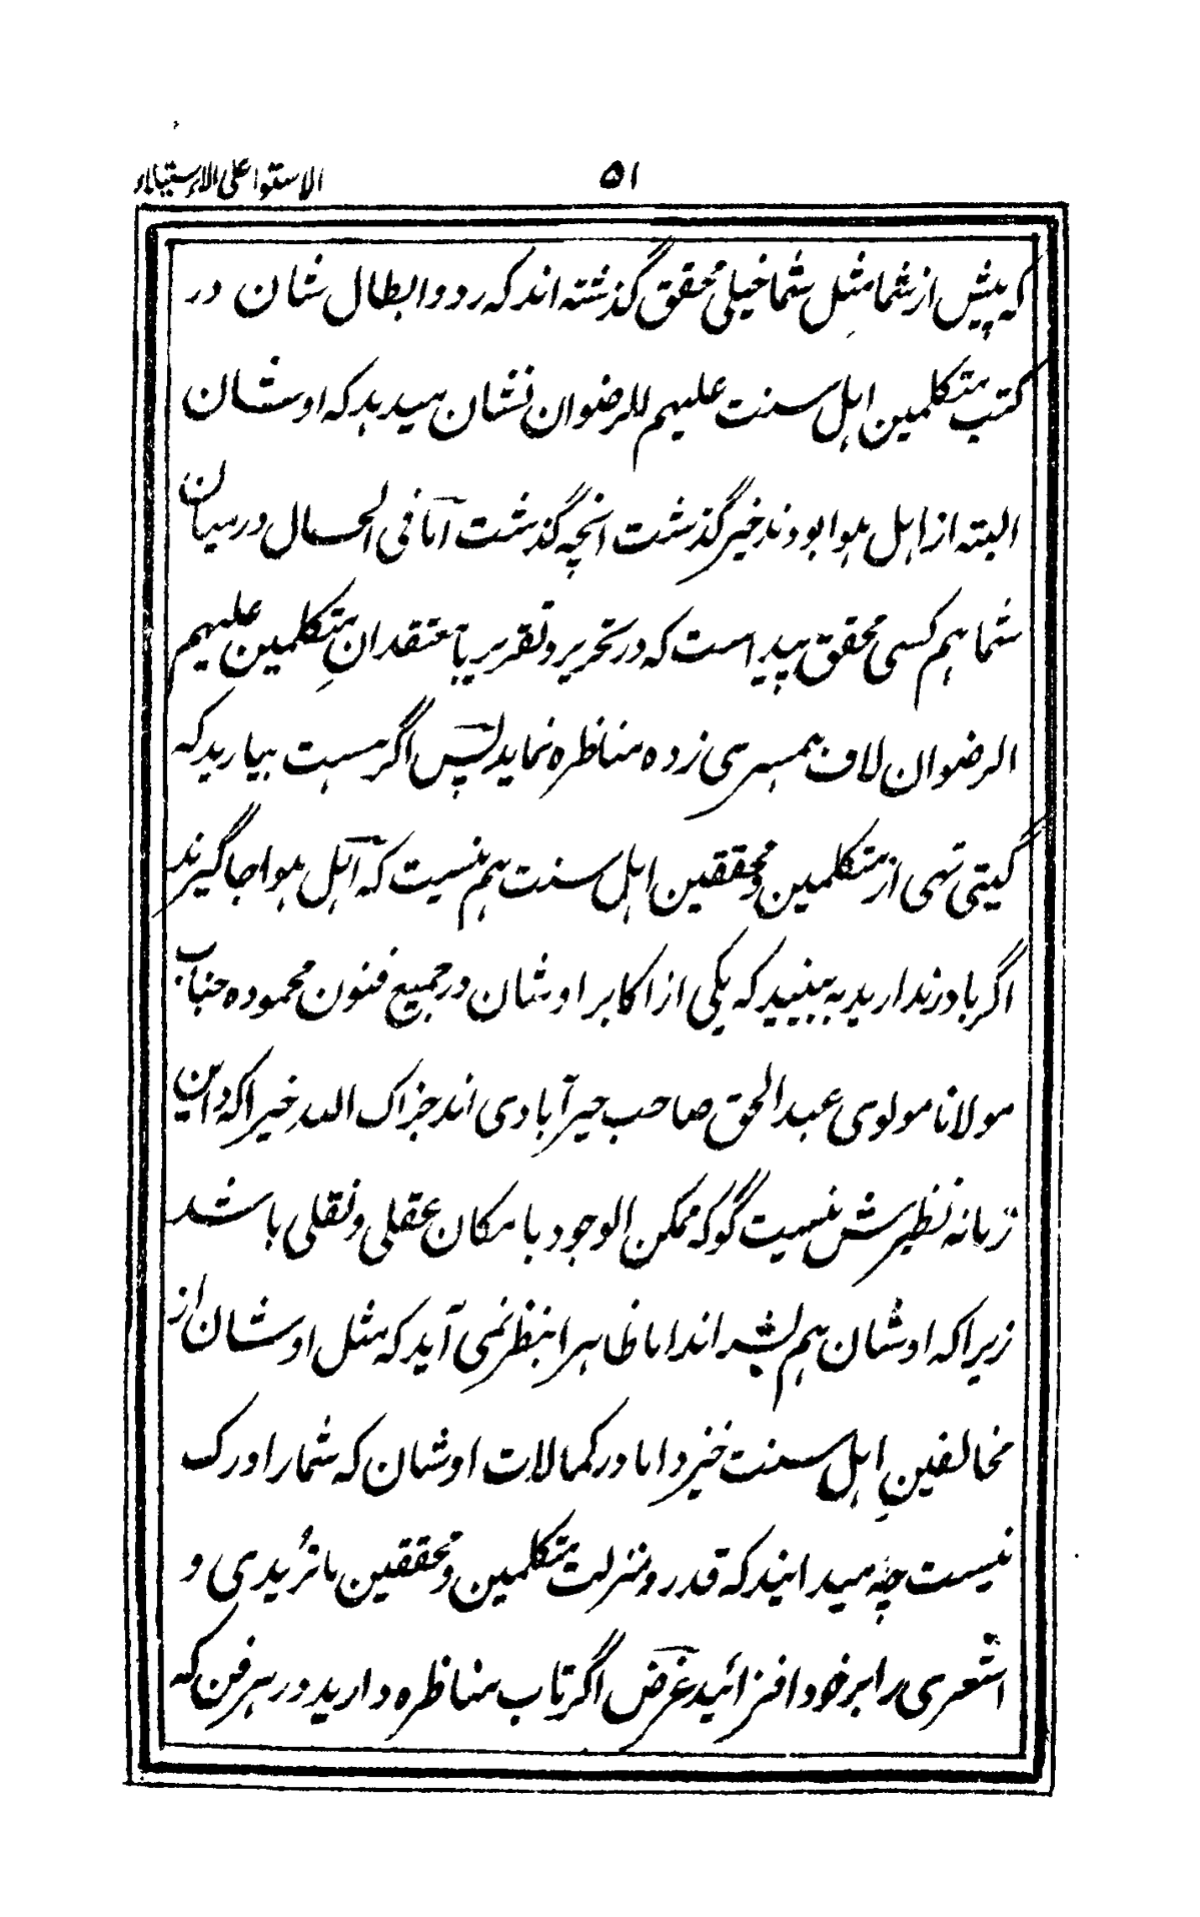 ۵۱
الاستوا علی الاستیلاء
که پیش از شما مثل شما خیلی محقق گذشته اند که رد و ابطال شان در
کتب متکلمین اہل سنت علیہم الرضوان نشان میدہد که اوشان
البته از اہل ہوا بودند خیر گذشت انچه گذشت آما فی الحال درمیان
شما ہم کسی محقق پیدا ست که در تحریر و تقریر با معتقدان متکلمین علیہم
الرضوان لاف ہمسری زده مناظره نماید پس اگر ہست بیارید که
گیتی تہی از متکلمین و محققین اہل سنت ہم نیست که اہل ہوا جا گیرند
اگر باور ندارید به بینید که یکی از اکابر اوشان در جمیع فنون محموده جناب
مولانا مولوی عبد الحق صاحب خیر آبادی اند جزاک الله خیرا که در این
زمانه نظیرش نیست گو که ممکن الوجود با مکان عقلی و نقلی باشد
زیرا که اوشان ہم بشر اند اما ظاہرا بنظر نمی آید که مثل اوشان از
مخالفین اہل سنت خیزد اما در کمالات اوشان که شما را درک
نیست چه میدانید که قدر و منزلت متکلمین و محققین ماتریدی و
اشعری را بر خود افزائید غرض اگر تاب مناظره دارید در ہر فن که